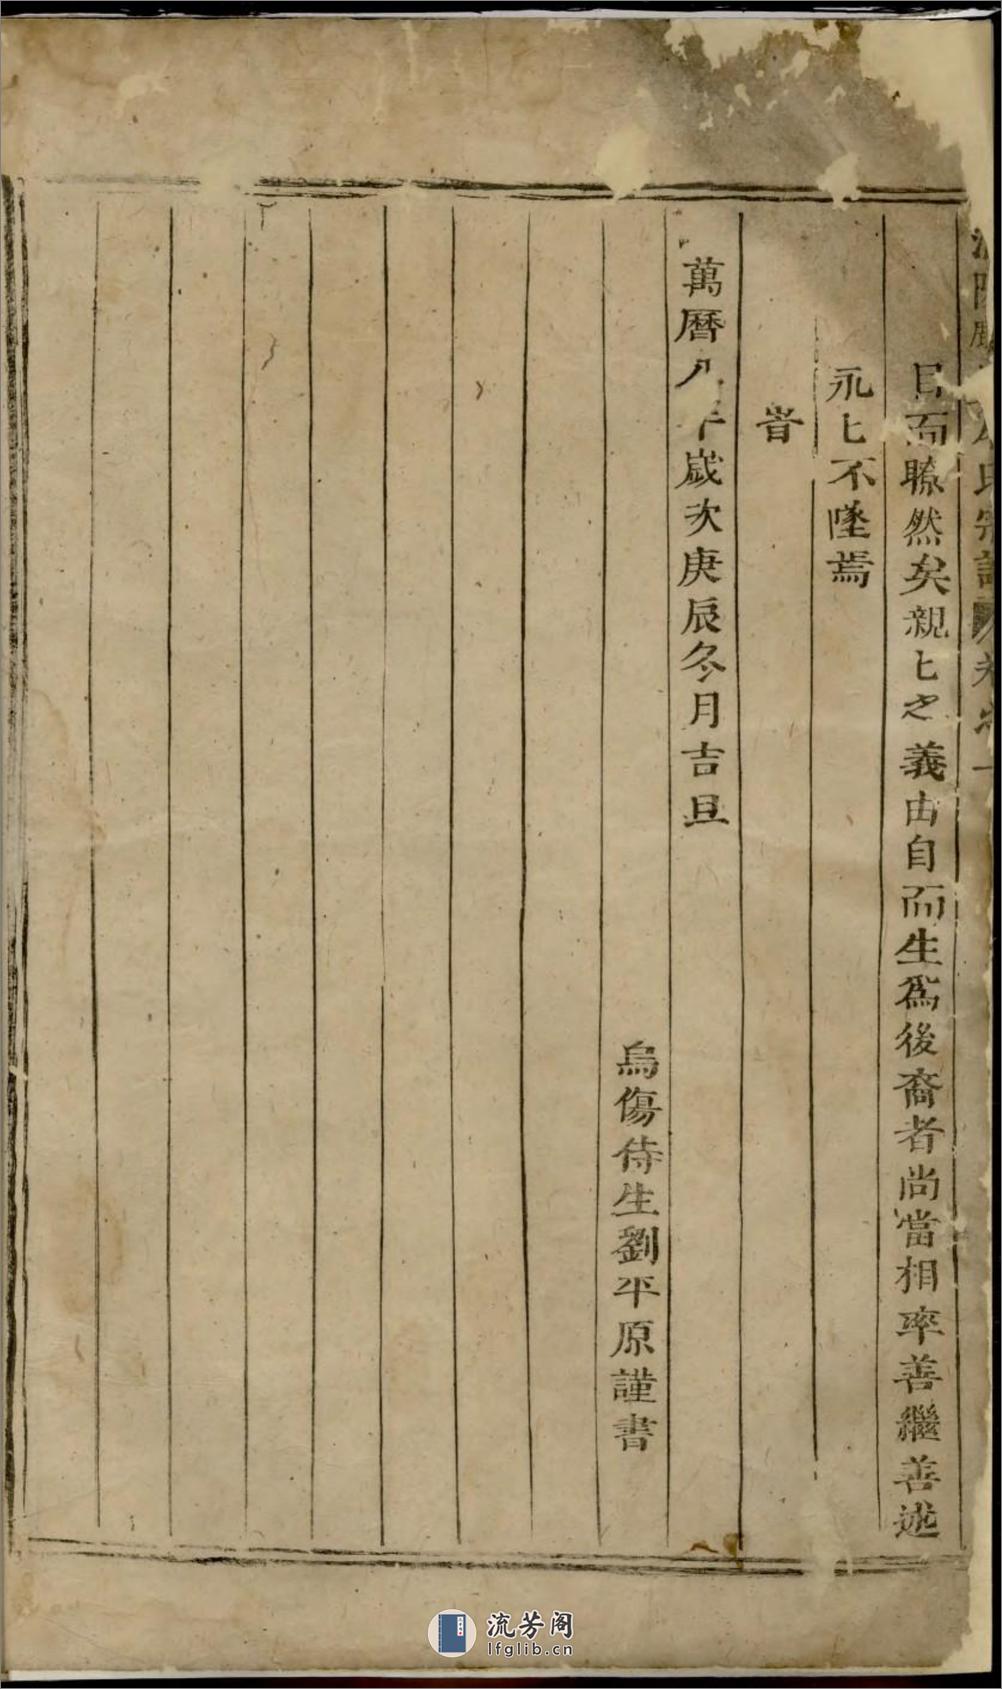 氏宗譜 卷之一
目而瞭然矣親匕之義由自而生爲後裔者尚當相率善繼善述
永匕不墜焉
旹
萬曆八年歲次庚辰冬月吉旦
烏傷侍生劉平原謹書
流芳阁
lfglib.cn